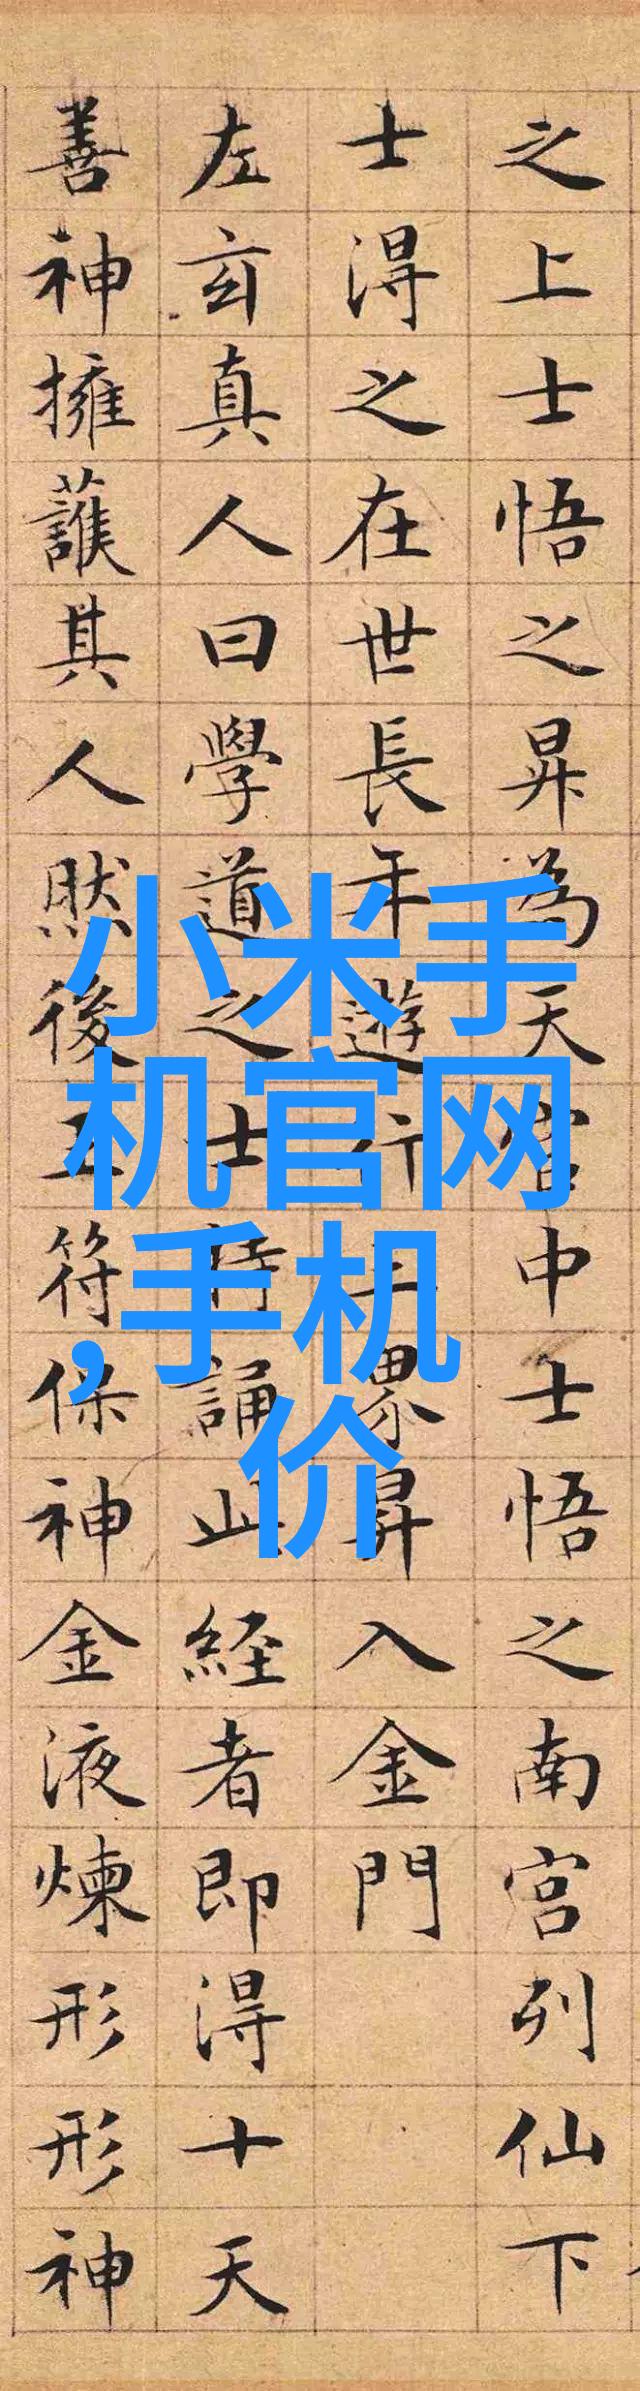 之上士悟之昇為天官中士悟之南宮列仙下
士淂之在世長年遊行三界昇入金門
左玄真人曰學道之士持誦此經者即淂十天
善神擁護其人然後玉符保神金液煉形形神
小米手
机官网
,手机
价